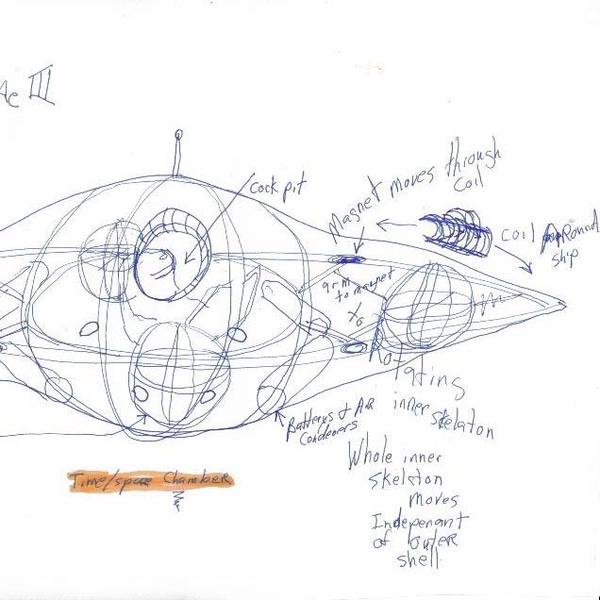 III
Cockpit
Magnet moves through
coil
coil Around
ship
arm
to magnet
Rotating
inner skelaton
Battereys & Air
Condencers
Whole inner
skeleton
moves
Indepenant
of outer
shell
Time/space Chamber